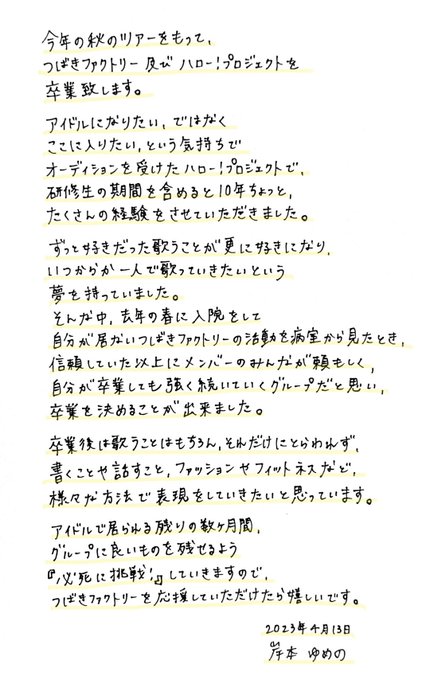 今年の秋のツアーをもって、
つばきファクトリー及びハロー!プロジェクトを
卒業致します。
アイドルになりたい、ではなく
ここに入りたい、という気持ちで
オーディションを受けたハロー!プロジェクトで、
研修生の期間を含めると10年ちょっと、
たくさんの経験をさせていただきました。
ずっと好きだった歌うことが更に好きになり、
いつからか一人で歌っていきたいという
夢を持っていました。
そんな中、去年の春に入院をして
自分が居ないつばきファクトリーの活動を病室から見たとき、
信頼していた以上にメンバーのみんなが頼もしく、
自分が卒業しても強く続いていくグループだと思い、
卒業を決めることが出来ました。
卒業後は歌うことはもちろん、それだけにとらわれず、
書くことや話すこと、ファッションやフィットネスなど、
様々な方法で表現をしていきたいと思っています。
アイドルで居られる残りの数ヶ月間、
グループに良いものを残せるよう
『必死に挑戦!』していきますので、
つばきファクトリーを応援していただけたら嬉しいです。
2023年4月13日
岸本 ゆめの